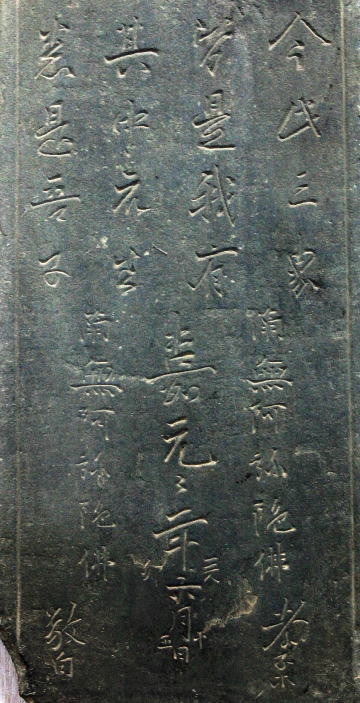 今此三界
皆是我有
其中衆生
悉是吾子
南無阿弥陀佛 孝子
嘉元二年六月十五日
南無阿弥陀佛 敬白